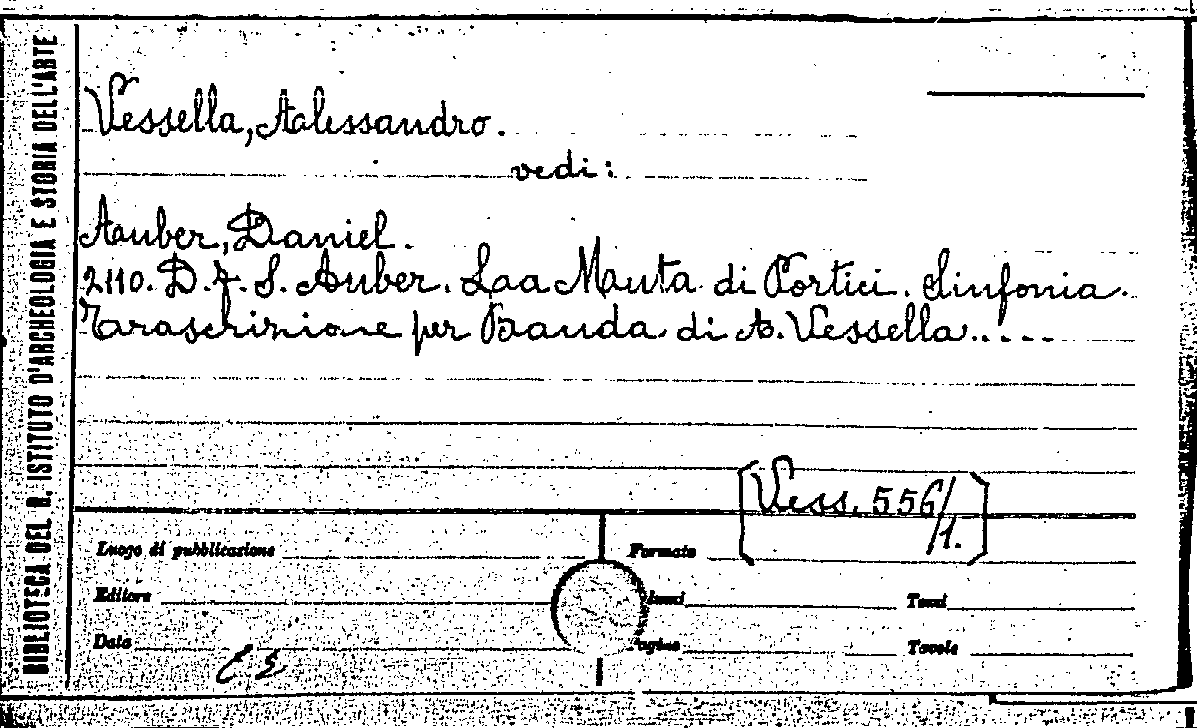 BIBLIOTECA DEL R. ISTITUTO D'ARCHEOLOGIA E STORIA DELL'ARTE
Vessella, Alessandro.
vedi:
Auber, Daniel.
2110. D. F. S. Auber. Laa Mauta di Portici. Sinfonia.
Taraschizione per Banda di A. Vessella.....
[Vess. 556/1.]
Luogo di pubblicazione
Formato
Editore
lumi
Tomi
Data
agine
Tavole